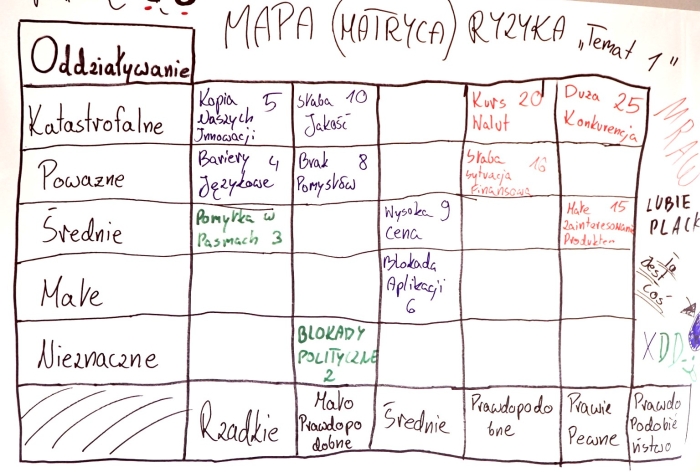 MAPA (MATRYCA) RYZYKA „Temat 1"
Oddziaływanie
Katastrofalne
Kopia 5
Naszych
Innowacji
słaba 10
Jakość
Kurs 20
Walut
Duża 25
Konkurencja
Poważne
Bariery 4
Językowe
Brak 8
Pomysłów
Słaba 16
sytuacja
Finansowa
Średnie
Pomyłka w
Pasmach 3
Wysoka 9
Cena
Małe 15
zainteresowanie
Produktem
Małe
Blokada
Aplikacji
6
Nieznaczne
BLOKADY
POLITYCZNE
2
Rzadkie
Mało
Prawdopo
dobne
Średnie
Prawdopodo
bne
Prawie
Pewne
Prawdo
Podobie
ństwo
LUBIE
PLACK
jest
coś
XDD